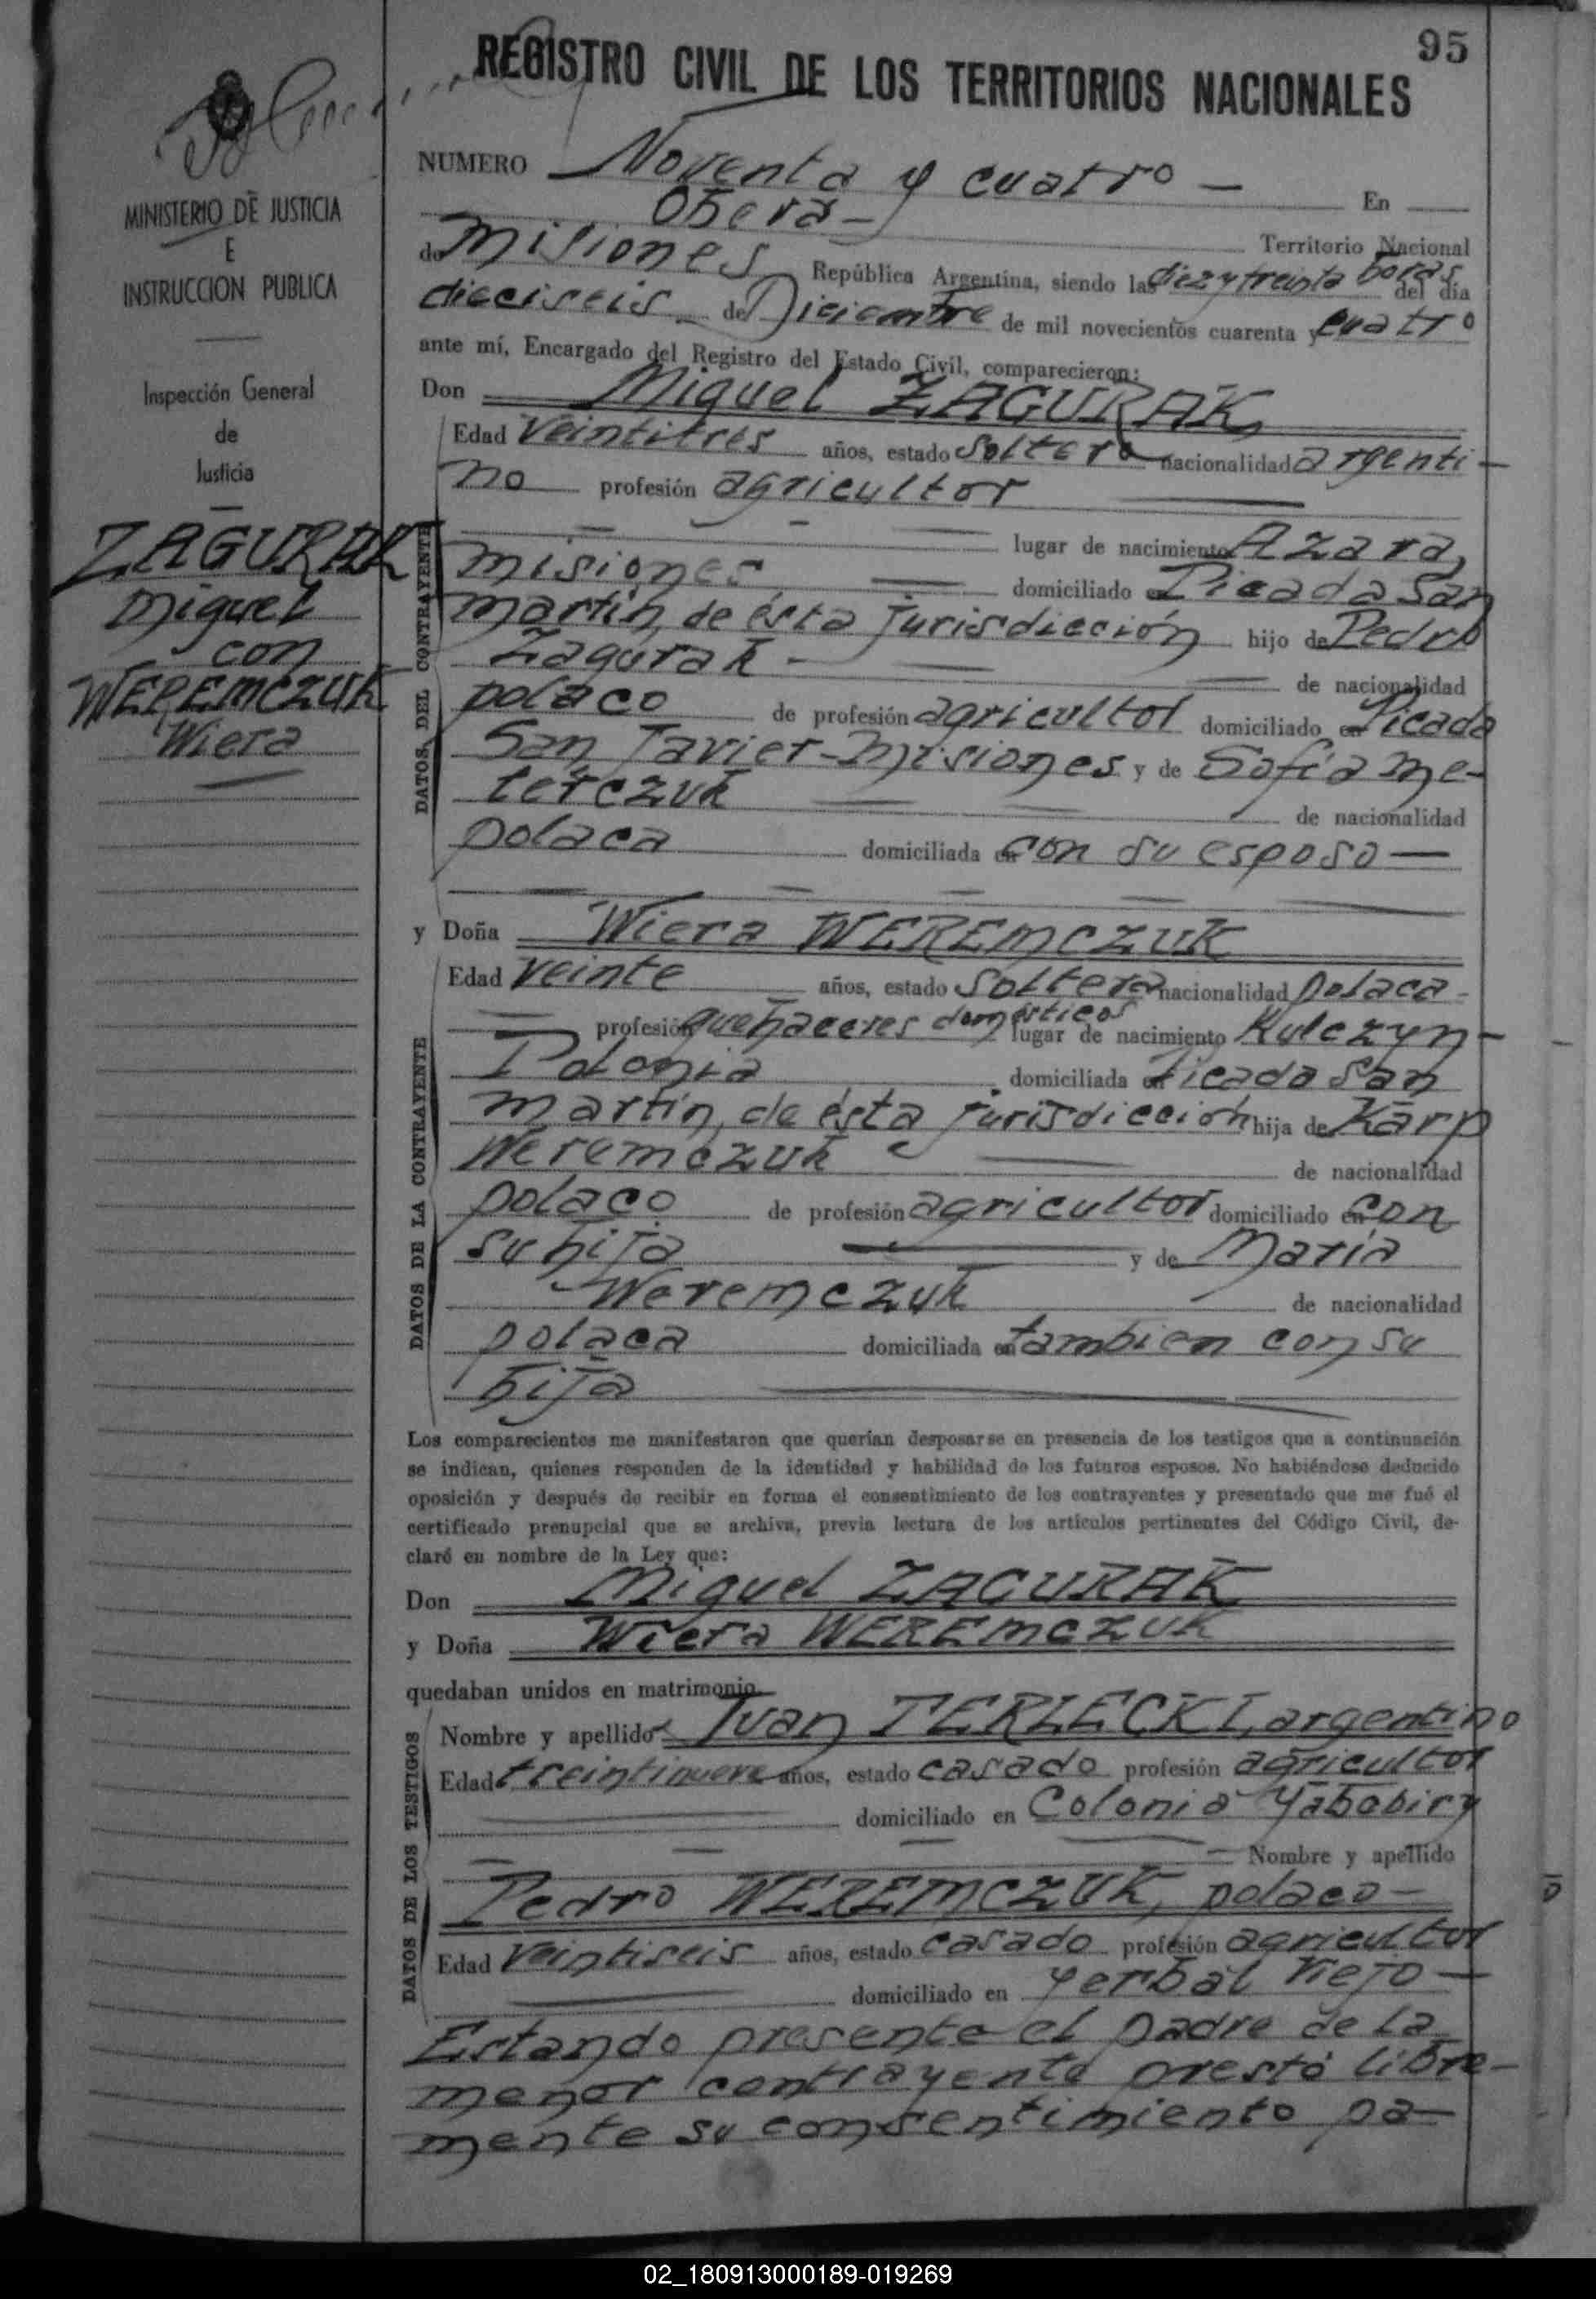 95
REGISTRO CIVIL DE LOS TERRITORIOS NACIONALES
MINISTERIO DE JUSTICIA
E
INSTRUCCION PUBLICA
Inspección General
de
Justicia
ZAGURAK
Miguel
con
WEREMCZUK
Wiera
NUMERO Noventa y cuatro — En
Oberá — Territorio Nacional
de Misiones República Argentina, siendo las diez y treinta horas del día
dieciseis de Diciembre de mil novecientos cuarenta y cuatro
ante mí, Encargado del Registro del Estado Civil, comparecieron:
Don Miguel ZAGURAK
DATOS DEL CONTRAYENTE
Edad Veintitres años, estado soltero nacionalidad argenti-
no profesión agricultor
lugar de nacimiento Azara,
Misiones domiciliado en Picada San
Martín, de ésta jurisdicción hijo de Pedro
Zagurak — de nacionalidad
polaco de profesión agricultor domiciliado en Picada
San Javier - Misiones y de Sofía Me-
lerczuk de nacionalidad
polaca domiciliada en con su esposo —
y Doña Wiera WEREMCZUK
DATOS DE LA CONTRAYENTE
Edad Veinte años, estado soltera nacionalidad polaca -
profesión quehaceres domésticos lugar de nacimiento Kulczyn -
Polonia domiciliada en Picada San
Martín, de ésta jurisdicción hija de Karp
Weremczuk de nacionalidad
polaco de profesión agricultor domiciliado en con
su hija y de María
Weremczuk de nacionalidad
polaca domiciliada en tambien con su
hija
Los comparecientes me manifestaron que querían desposarse en presencia de los testigos que a continuación
se indican, quienes responden de la identidad y habilidad de los futuros esposos. No habiéndose deducido
oposición y después de recibir en forma el consentimiento de los contrayentes y presentado que me fué el
certificado prenupcial que se archiva, previa lectura de los artículos pertinentes del Código Civil, de-
claré en nombre de la Ley que:
Don Miguel ZAGURAK
y Doña Wiera WEREMCZUK
quedaban unidos en matrimonio
DATOS DE LOS TESTIGOS
Nombre y apellido Juan TERLECKI, argentino
Edad treintinueve años, estado casado profesión agricultor
domiciliado en Colonia Yabebiry
Nombre y apellido
Pedro WEREMCZUK, polaco —
Edad Veintiseis años, estado casado profesión agricultor
domiciliado en Yerbal Viejo —
Estando presente el padre de la
menor contrayente prestó libre-
mente su consentimiento pa-
02_180913000189-019269